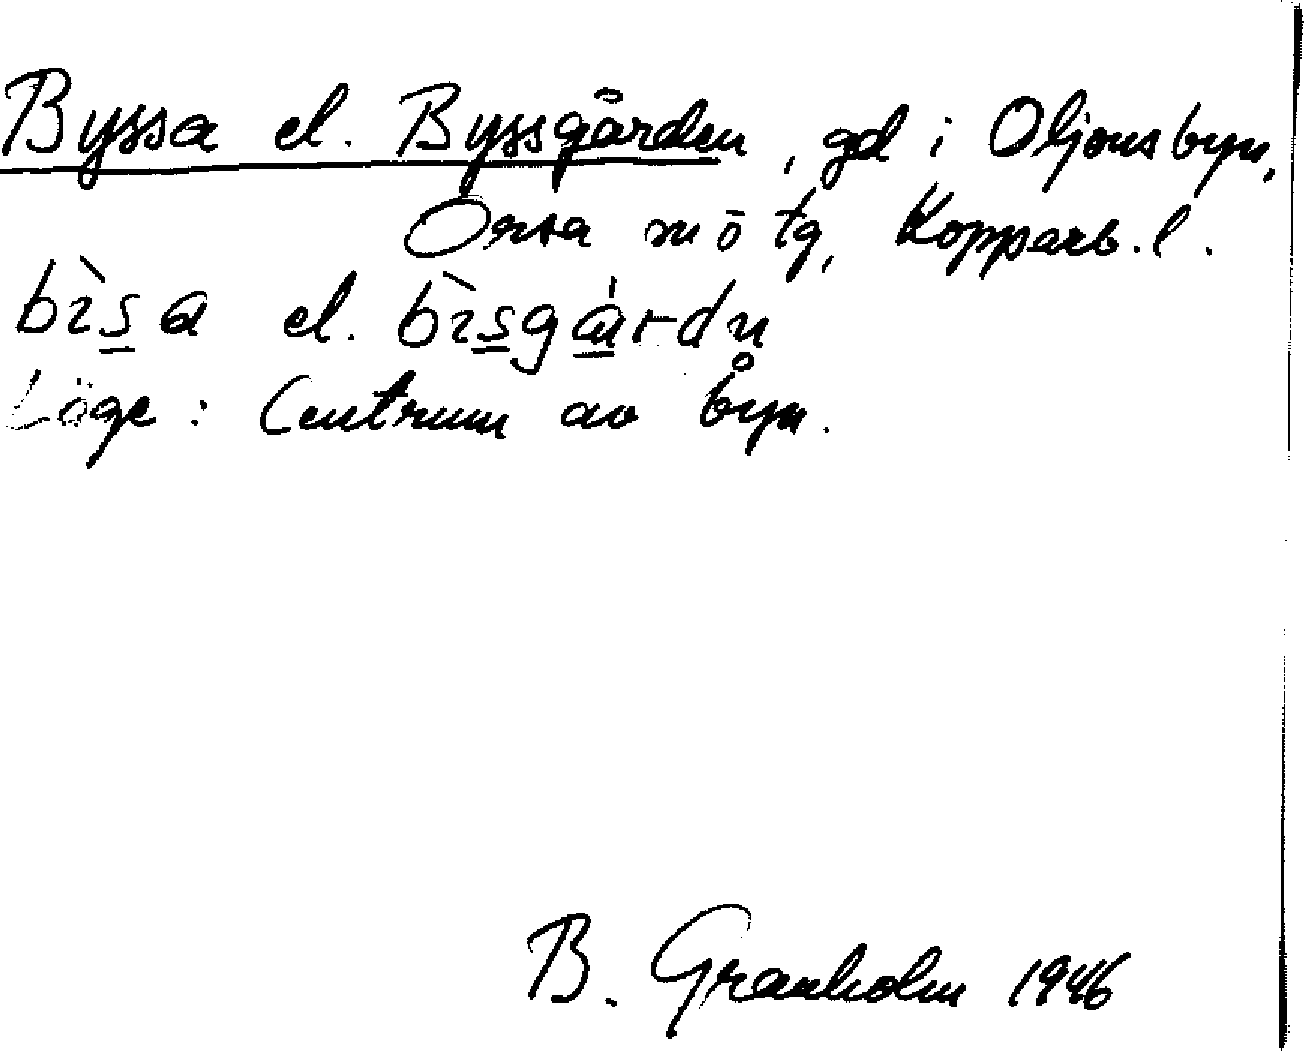 Byssa el. Byssgården, gd i Oljonsbyn,
Orsa m ö tg, Kopparb. l.
bìsa el. bìsgárdn
Läge: Centrum av byn.
B. Granholm 1946